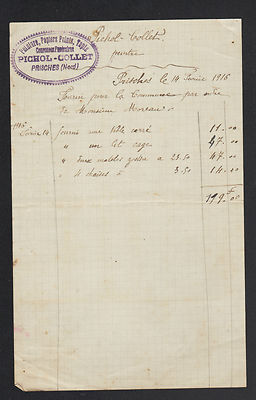 Peinture, Papiers Peints, Tapis
Couronnes Funéraires
PICHOL-COLLET
PRISCHES (Nord)
Pichol-Collet
peintre
Prisches le 14 Janvier 1916
Fourni pour la Commune par ordre
de Monsieur Moreau
1916
Janvier 14 fourni une table carré 11.00
" un lit cage 47.00
" deux matelas à 23.50 47.00
" 4 chaises à 3.50 14.00
119.00